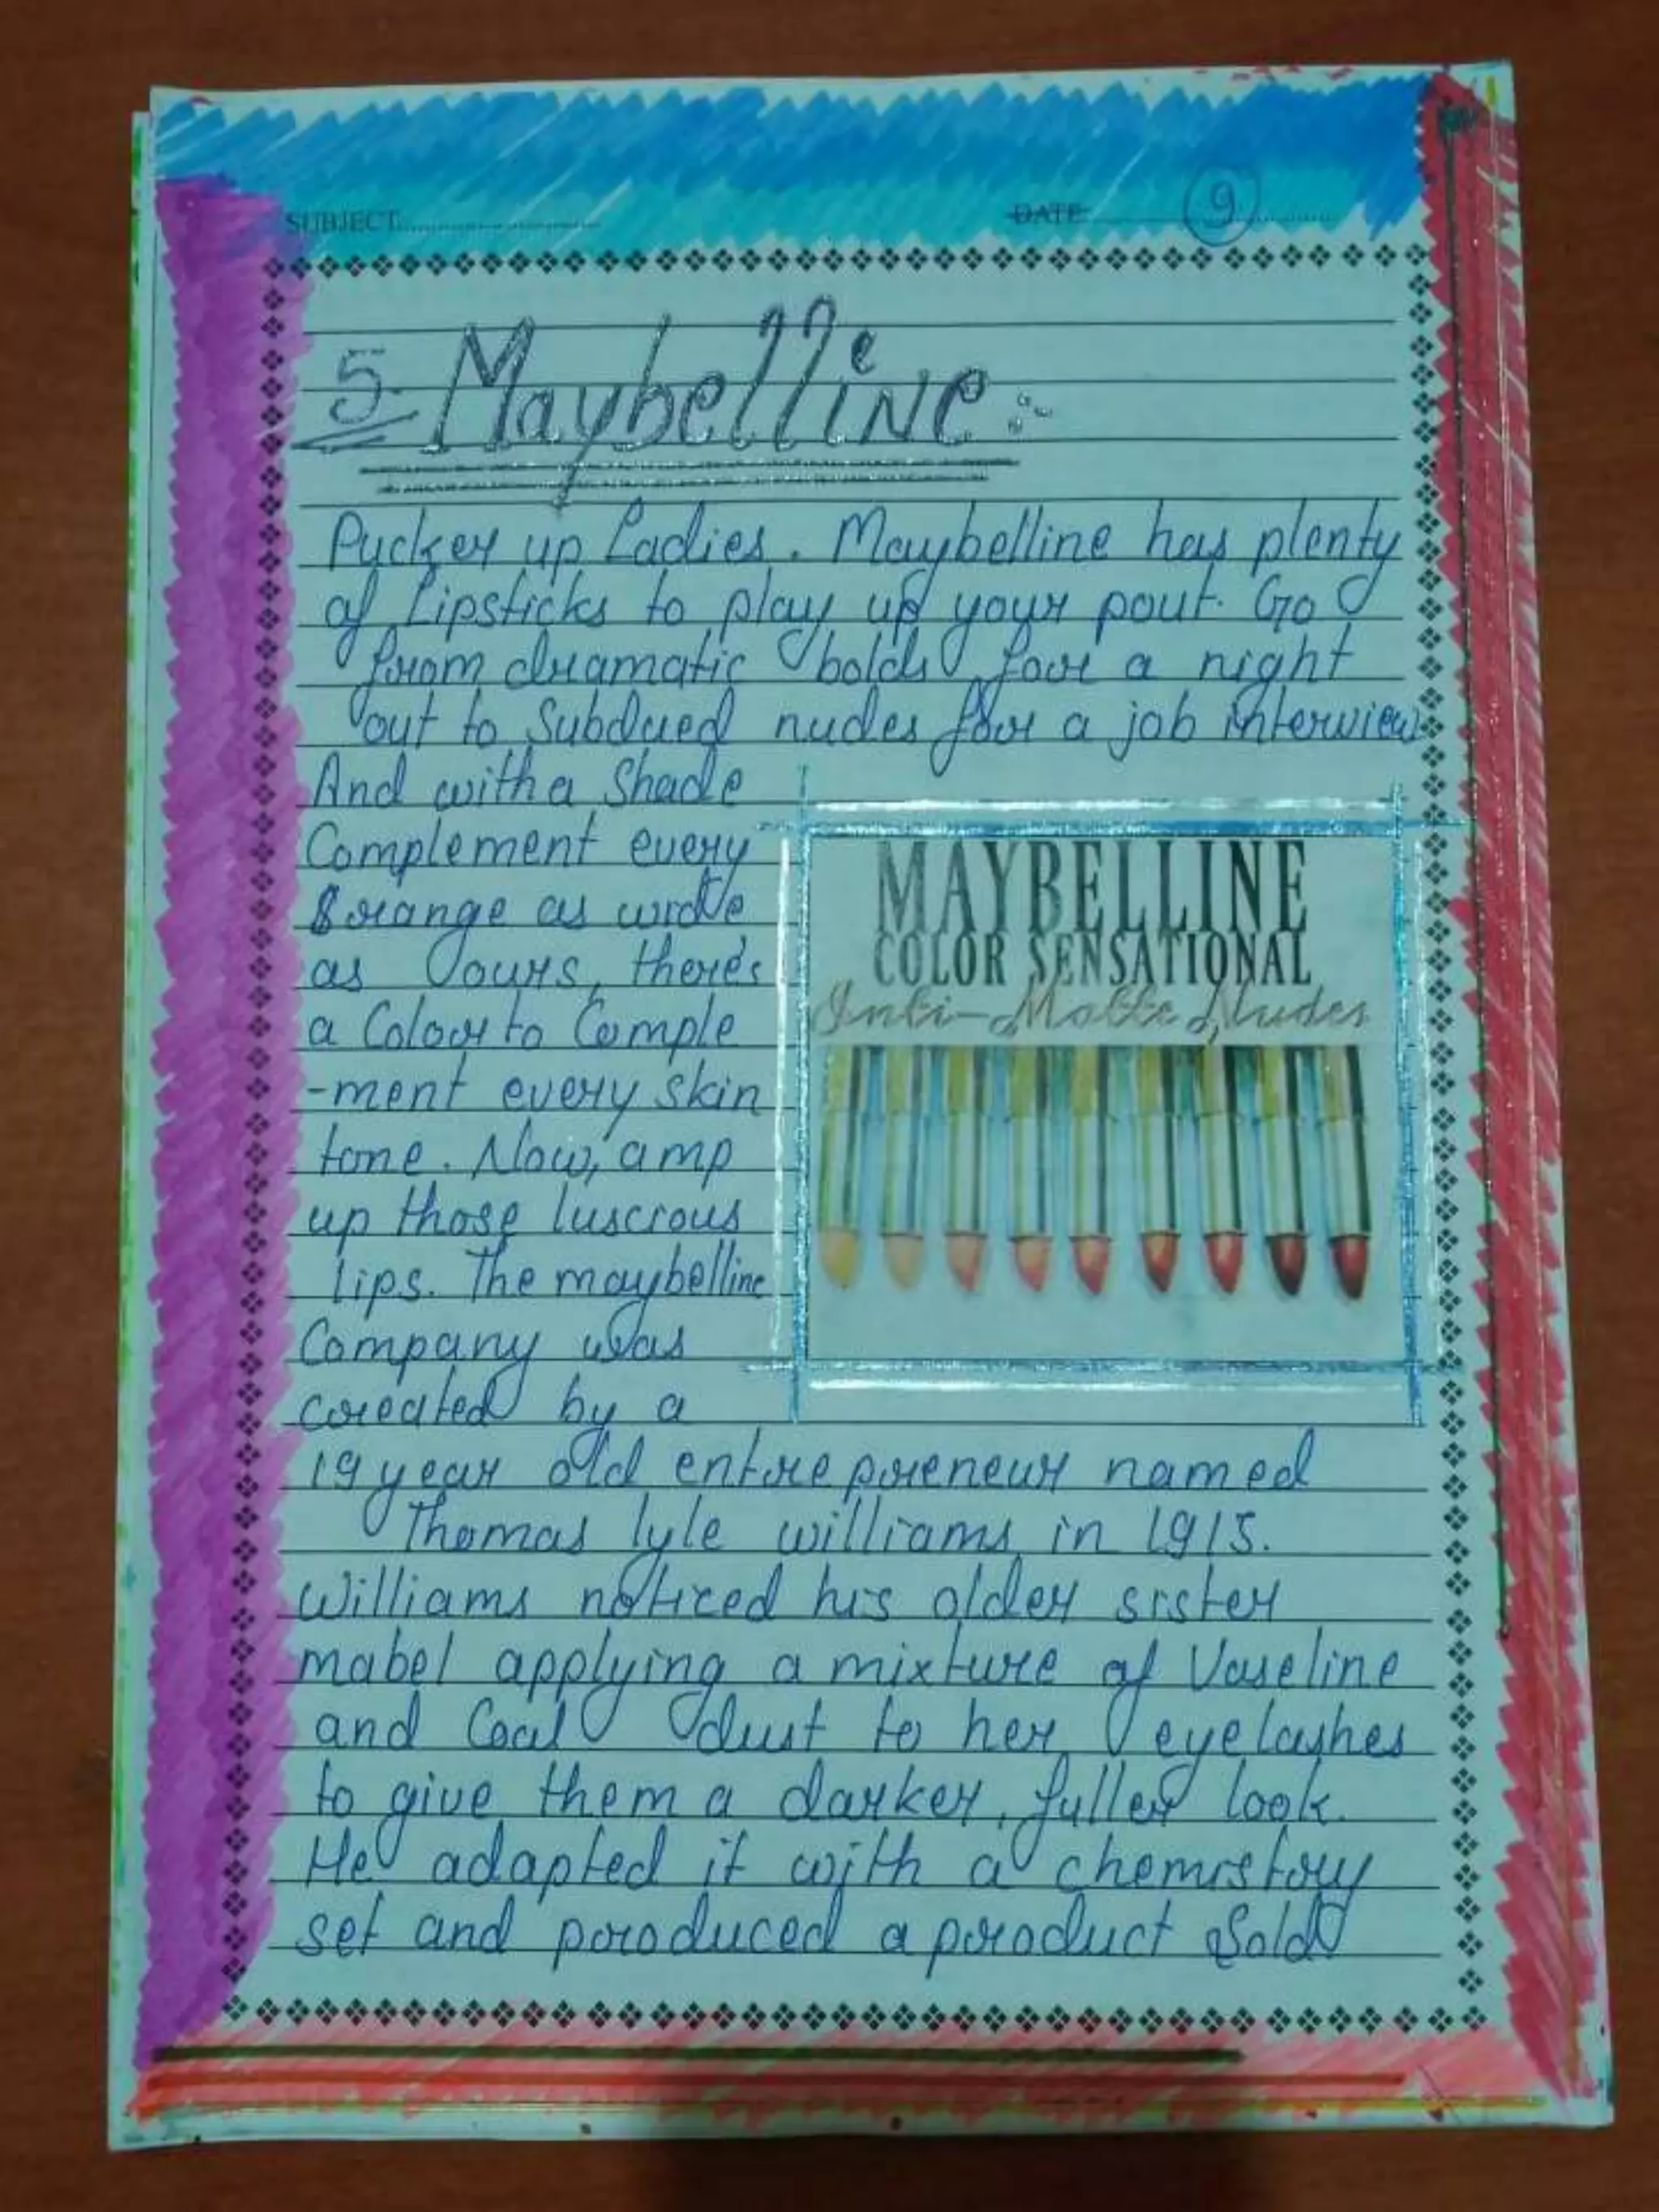 SUBJECT..............................
DATE..............................
9
5- Maybelline :-
Pucker up Ladies. Maybelline has plenty
of Lipsticks to play up your pout. Go
from dramatic bolds for a night
out to Subdued nudes for a job interview
And with a Shade
Complement every
range as wide
as ours, there's
a Colour to Comple
-ment every skin
tone. Now, amp
up those luscious
lips. The maybelline
Company was
created by a
19 year old entrepreneur named
Thomas lyle williams in 1915.
Williams noticed his older sister
mabel applying a mixture of Vaseline
and Coal dust to her eyelashes
to give them a darker, fuller look.
He adapted it with a chemistry
set and produced a product Sold
MAYBELLINE
COLOR SENSATIONAL
Inti-Matte Nudes